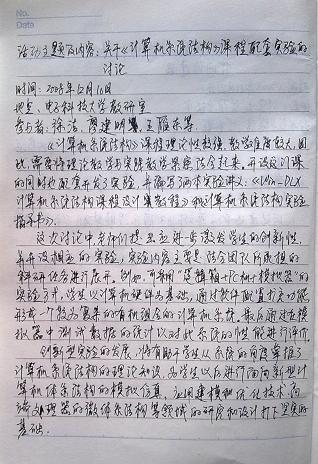 No.
Date
活动主题及内容：关于《计算机系统结构》课程配套实验的
讨论
时间：2008年12月16日
地点：电子科技大学教研室
参与者：徐洁、廖建明、王雁东等
《计算机系统结构》课程理论性较强，教学难度较大，因
此，需要将理论教学与实践教学紧密结合起来。开设这门课
的同时也配套开发了实验，并编写了两本实验讲义：《Win-DLX
计算机系统结构课程设计实验教程》和《计算机系统结构实验
指导书》。
这次讨论中，老师们提出应进一步激发学生的创新性，
并开设相应的实验，实验内容主要结合团队所承担的
科研任务进行展开。例如，可采用“逻辑箱+PC机+模拟器”的
实验方式，学生以计算机硬件为基础，通过软件配置扩充功能
形成一个较为完整的有机视角的计算机系统，最后通过在模拟
器中测试数据的统计以对此系统的性能进行评价。
创新型实验的发展，将有助于学生从系统的角度掌握了
计算机系统结构的理论知识，为学生以后进行面向新型计
算机体系结构的模拟仿真，运用建模和优化技术，向
流处理器的微体系结构等领域的研究和设计打下坚实的
基础。